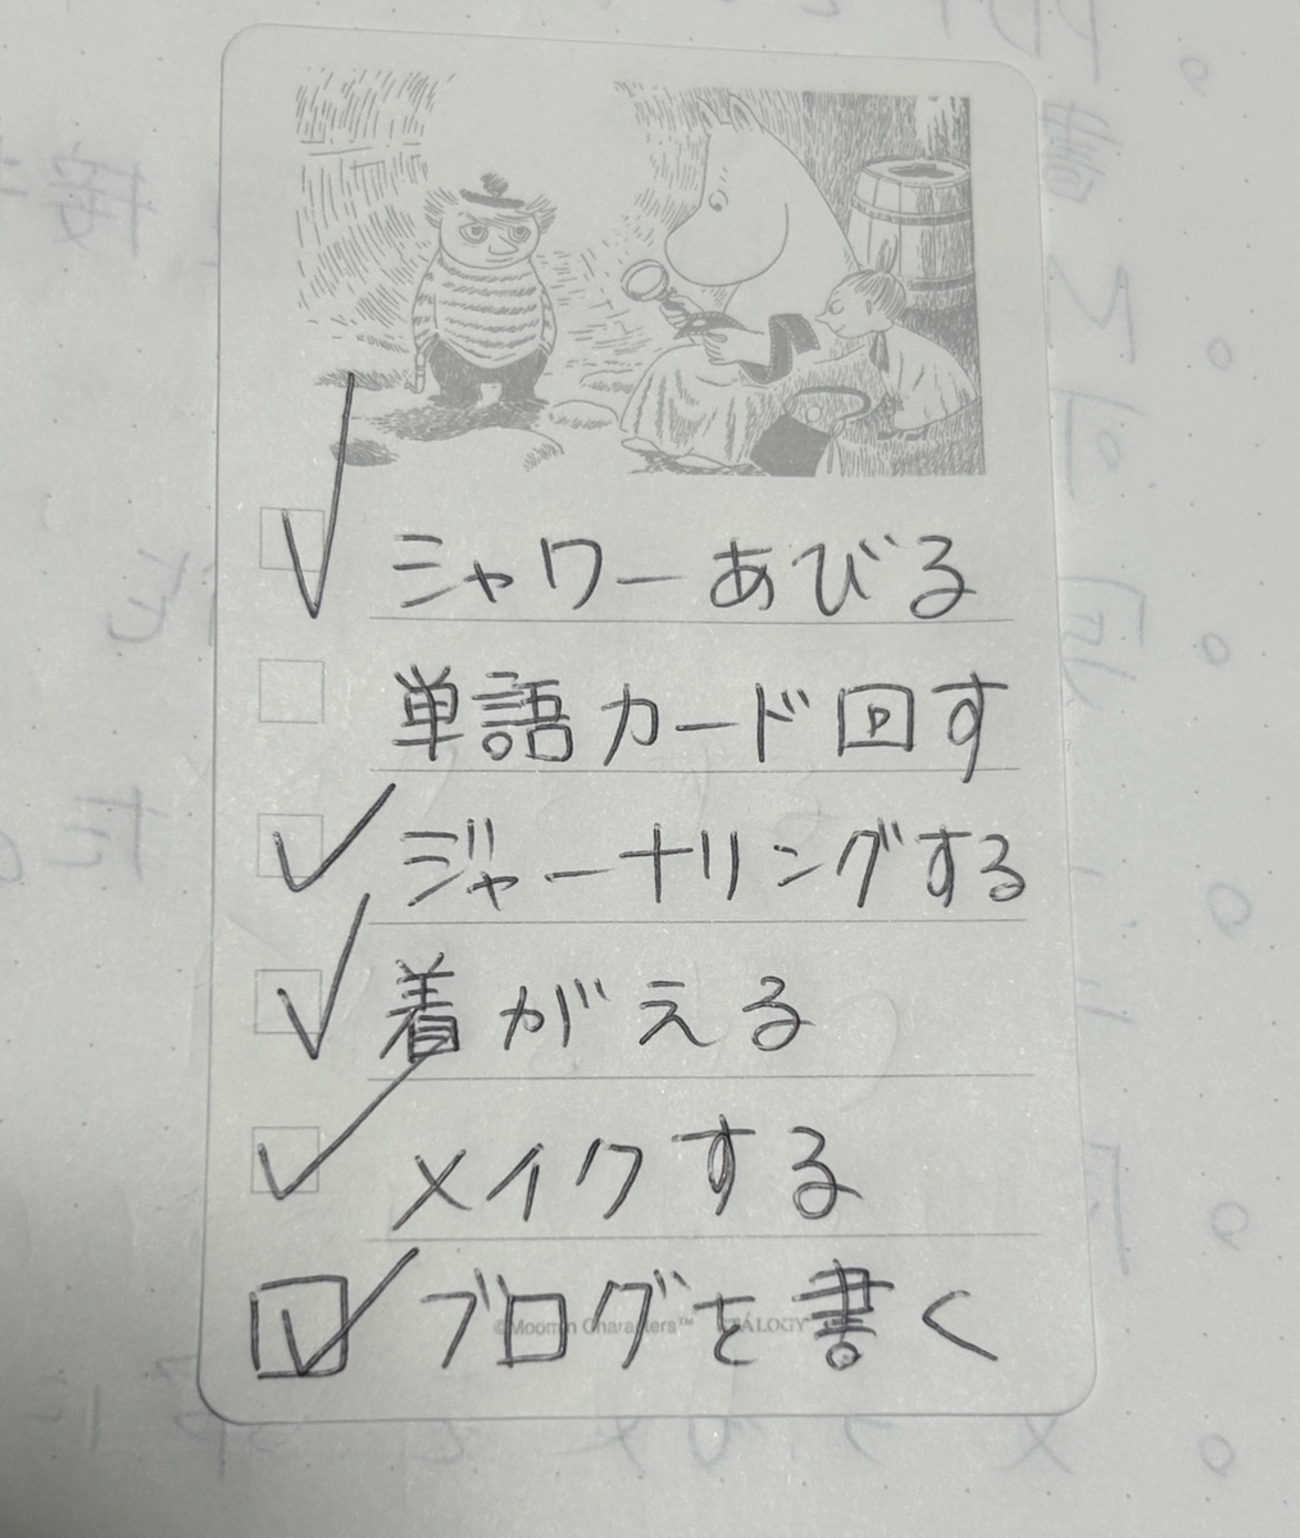 シャワーあびる
単語カード回す
ジャーナリングする
着がえる
メイクする
ブログを書く
©Moomin Characters™ STÁLOGY